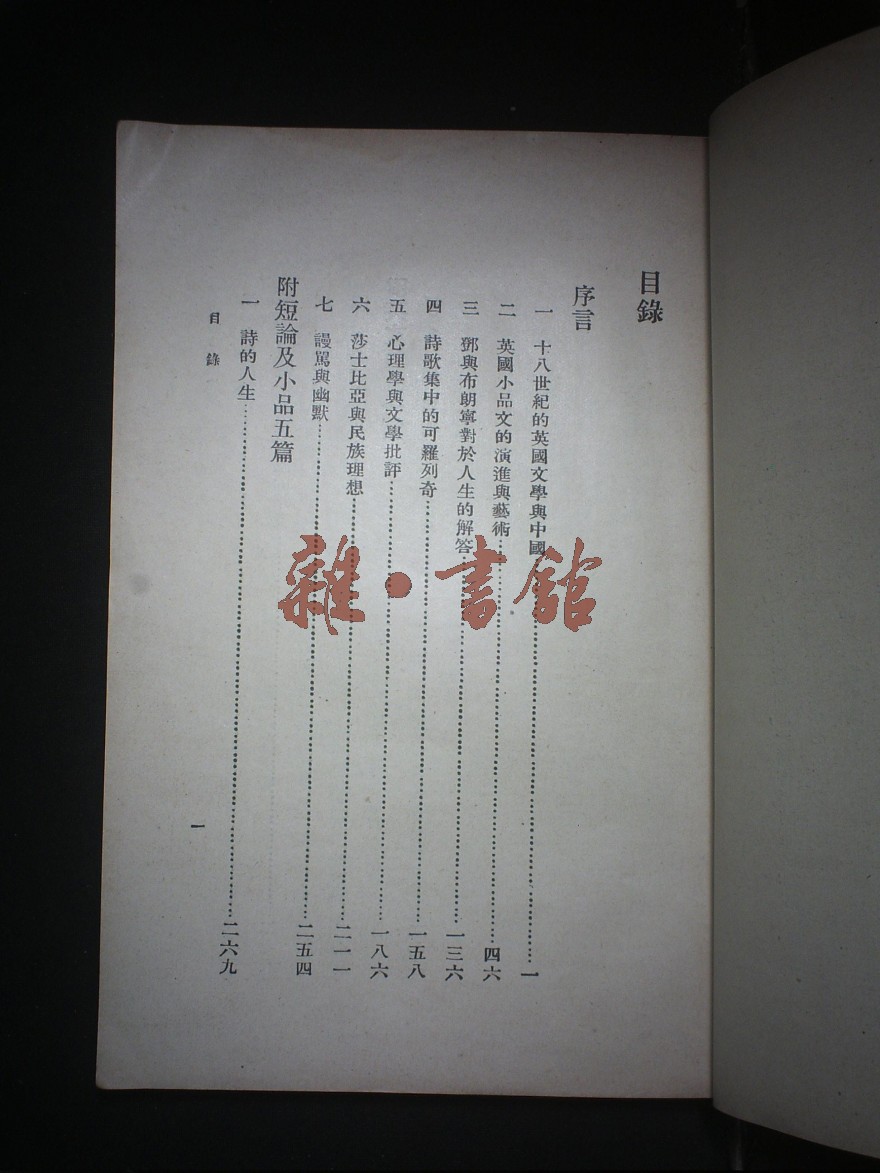 目錄
序言
一 十八世紀的英國文學與中國……一
二 英國小品文的演進與藝術……四六
三 鄧與布朗寧對於人生的解答……一三六
四 詩歌集中的可羅列奇……一五八
五 心理學與文學批評……一八六
六 莎士比亞與民族理想……二一一
七 謾罵與幽默……二五四
附短論及小品五篇
一 詩的人生……二六九
目錄
一
雜·書館